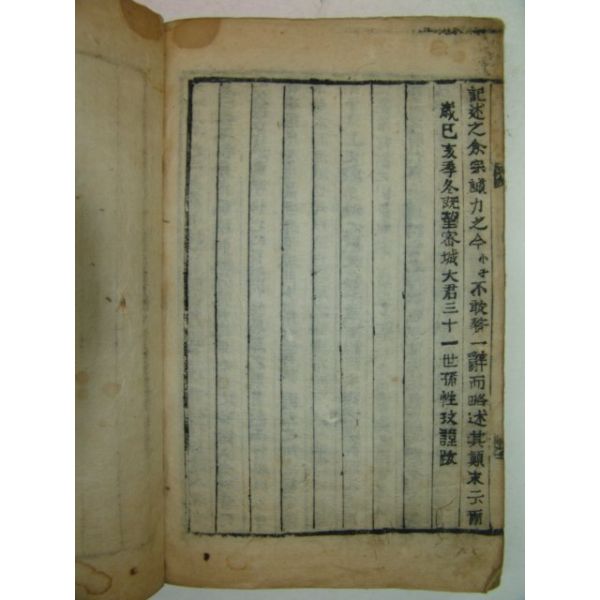 記述之余宗議力之今小子不敢務一辭而略述其顚末云爾
歲己亥季冬旣望密城大君三十一世孫性玟謹跋